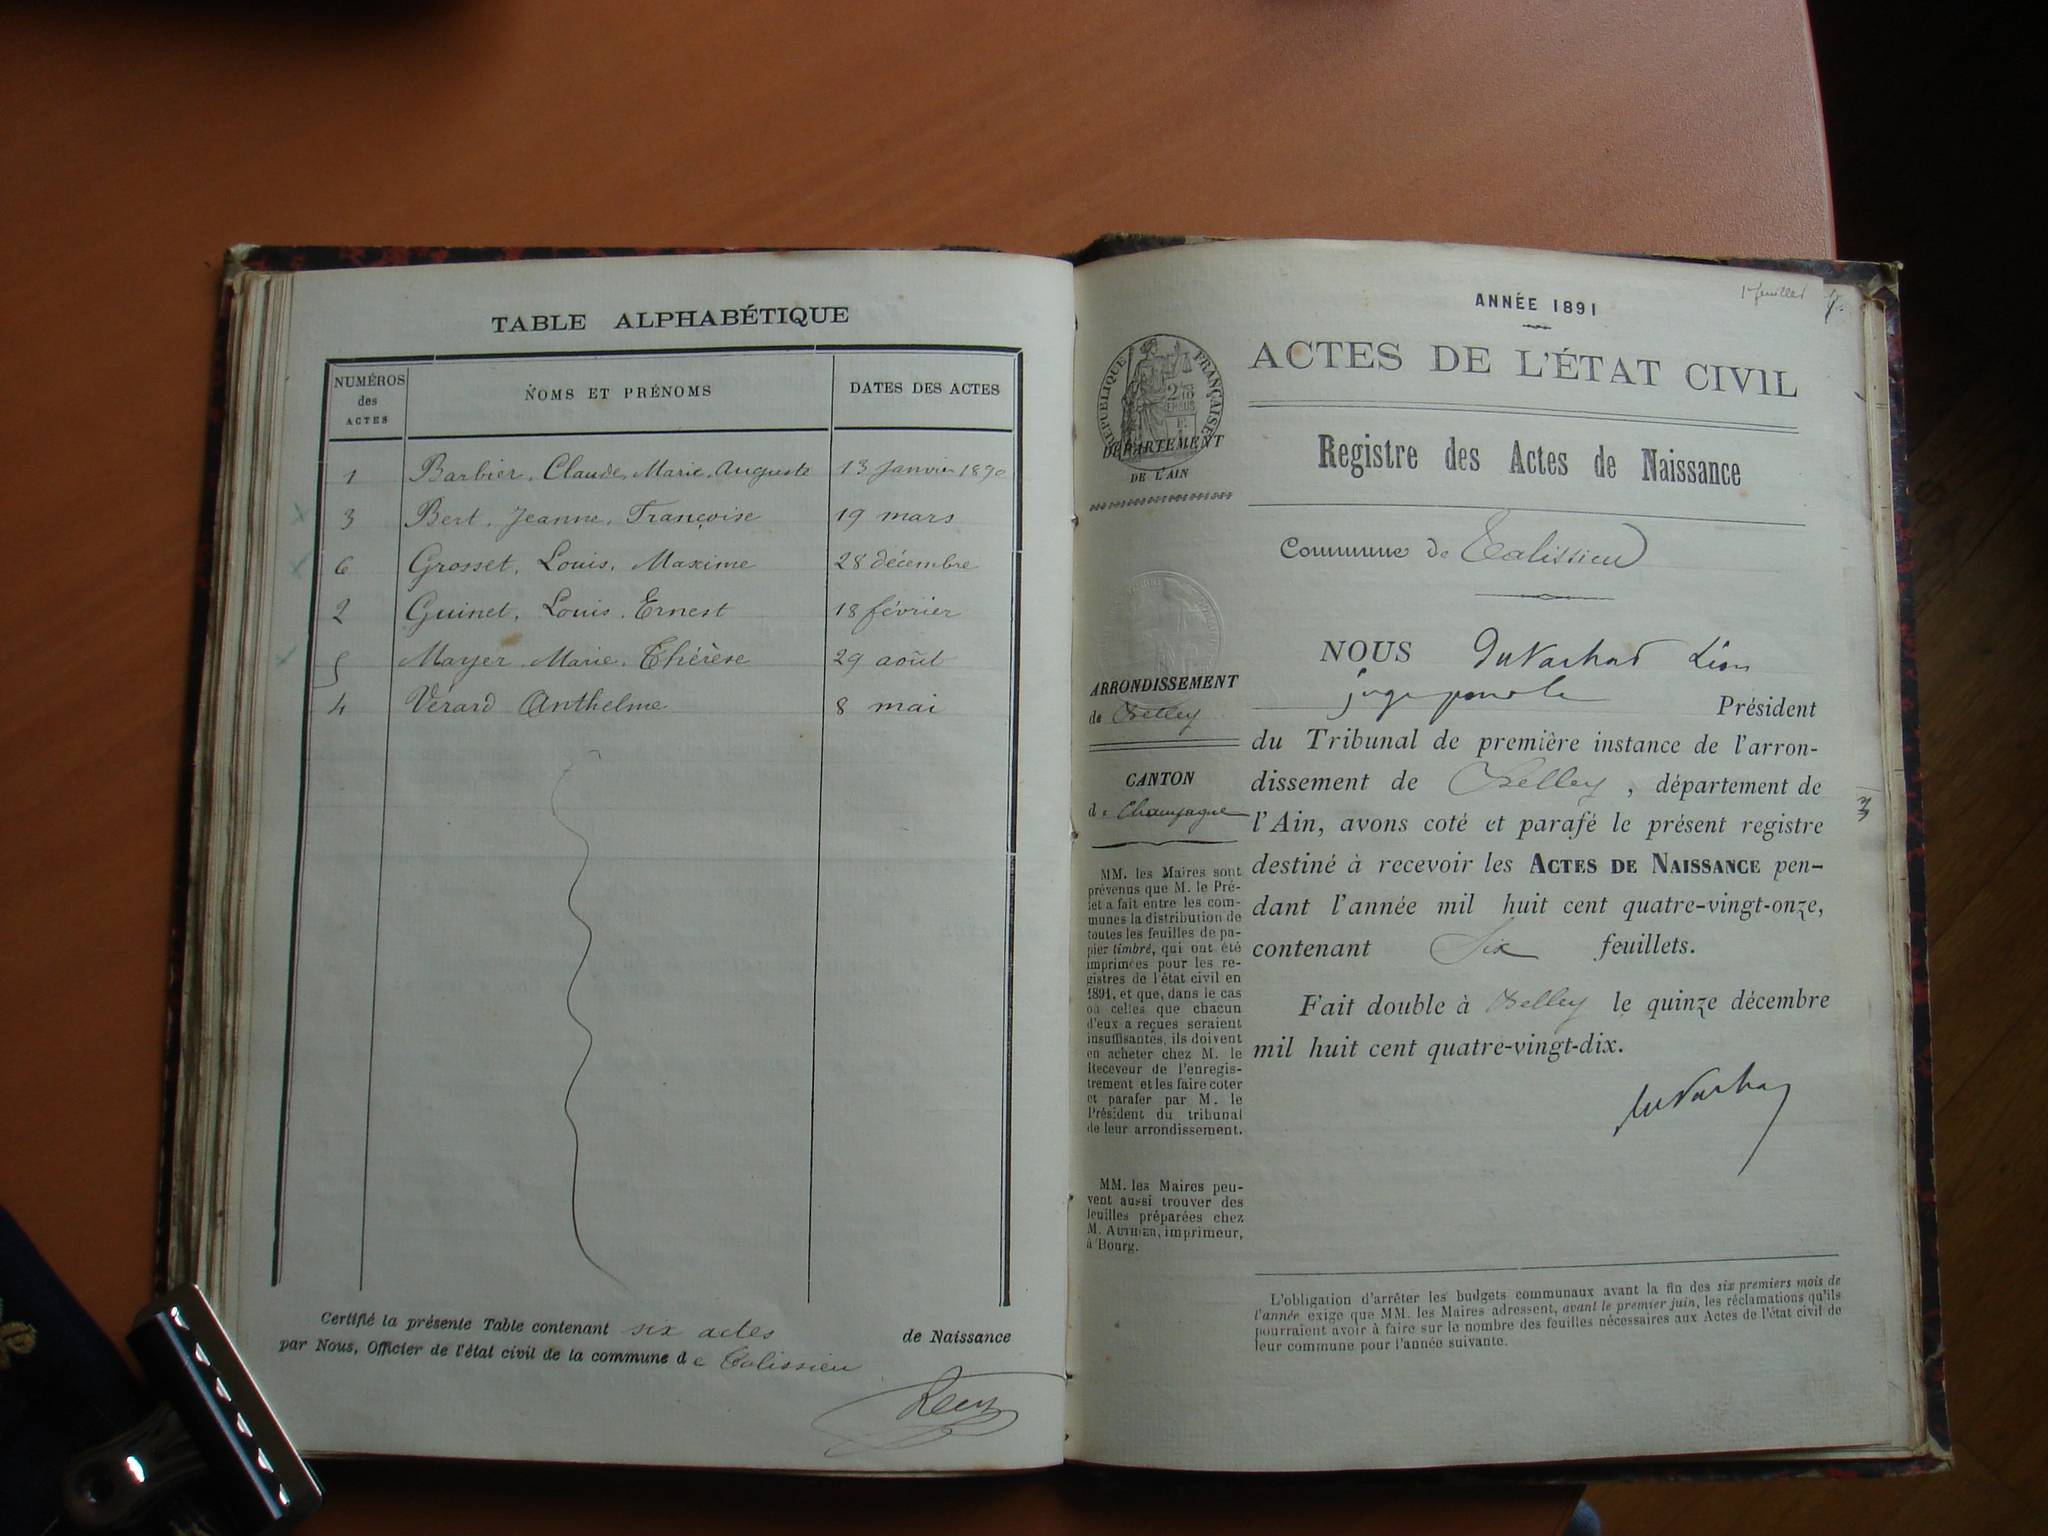 TABLE ALPHABÉTIQUE
NUMÉROS
des
ACTES
NOMS ET PRÉNOMS
DATES DES ACTES
1 Barbier, Claude, Marie, Auguste 13 Janvier 1890
3 Bert, Jeanne, Françoise 19 mars
6 Grosset, Louis, Maxime 28 décembre
2 Guinet, Louis, Ernest 18 février
5 Mayer, Marie, Thérèse 29 août
4 Vérard Anthelme 8 mai
Certifié la présente Table contenant six actes de Naissance
par Nous, Officier de l'état civil de la commune de Talissieu
1er feuillet
ANNÉE 1891
ACTES DE L'ÉTAT CIVIL
Registre des Actes de Naissance
Commune de Talissieu
RÉPUBLIQUE FRANÇAISE
DÉPARTEMENT
DE L'AIN
ARRONDISSEMENT
de Belley
CANTON
de Champagne
MM. les Maires sont
prévenus que M. le Pré-
fet a fait entre les com-
munes la distribution de
toutes les feuilles de pa-
pier timbré, qui ont été
imprimées pour les re-
gistres de l'état civil en
1891, et que, dans le cas
où celles que chacun
d'eux a reçues seraient
insuffisantes, ils doivent
en acheter chez M. le
Receveur de l'enregis-
trement et les faire coter
et parafer par M. le
Président du tribunal
de leur arrondissement.
MM. les Maires peu-
vent aussi trouver des
feuilles préparées chez
M. AUTHIER, imprimeur,
à Bourg.
NOUS Léon
juge pour le Président
du Tribunal de première instance de l'arron-
dissement de Belley, département de
l'Ain, avons coté et parafé le présent registre
destiné à recevoir les ACTES DE NAISSANCE pen-
dant l'année mil huit cent quatre-vingt-onze,
contenant Six feuillets.
Fait double à Belley le quinze décembre
mil huit cent quatre-vingt-dix.
L'obligation d'arrêter les budgets communaux avant la fin des six premiers mois de
l'année exige que MM. les Maires adressent, avant le premier juin, les réclamations qu'ils
pourraient avoir à faire sur le nombre des feuilles nécessaires aux Actes de l'état civil de
leur commune pour l'année suivante.